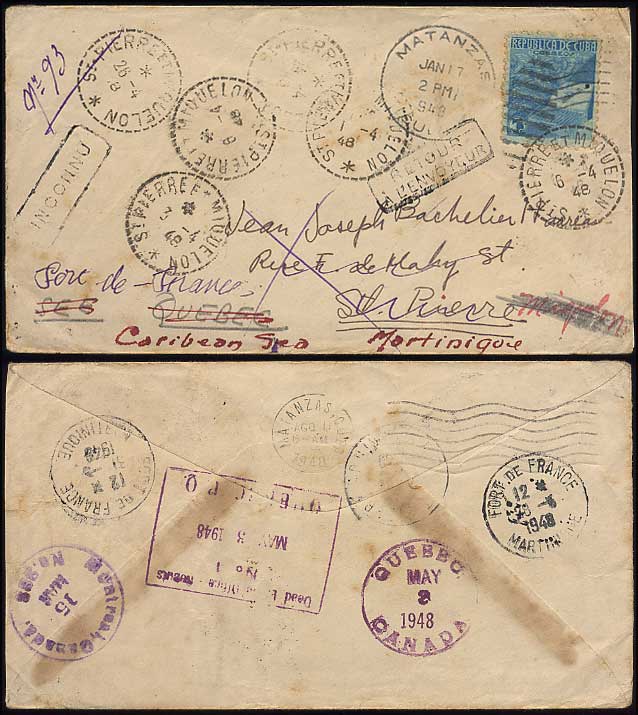 No 93
ST PIERRE ET MIQUELON
26-4
48
INCONNU
ST PIERRE ET MIQUELON
8-4
48
ST PIERRE ET MIQUELON
ST PIERRE ET MIQUELON
1-4
48
MATANZAS
JAN 17
2 PM
1948
CUBA
REPUBLICA DE CUBA
CORREOS
RETOUR
A L'ENVOYEUR
ST PIERRE ET MIQUELON
6-4
48
ST PIERRE ET MIQUELON
3-4
48
Jean Joseph Bachelier Maria
Rue F. de Mahy St.
Fore de-France
St. Pierre
QUEBEC
Caribean Sea Martinique
FORT DE FRANCE
MARTINIQUE
12
1948
MATANZAS, CUBA
AGO 11
1948
FORT DE FRANCE
12
1948
MARTINIQUE
QUEBEC P.Q.
MAY 3 1948
No 1
Dead Letter Office
Montreal, Canada.
15
MAR
QUEBEC.
MAY
3
1948
CANADA